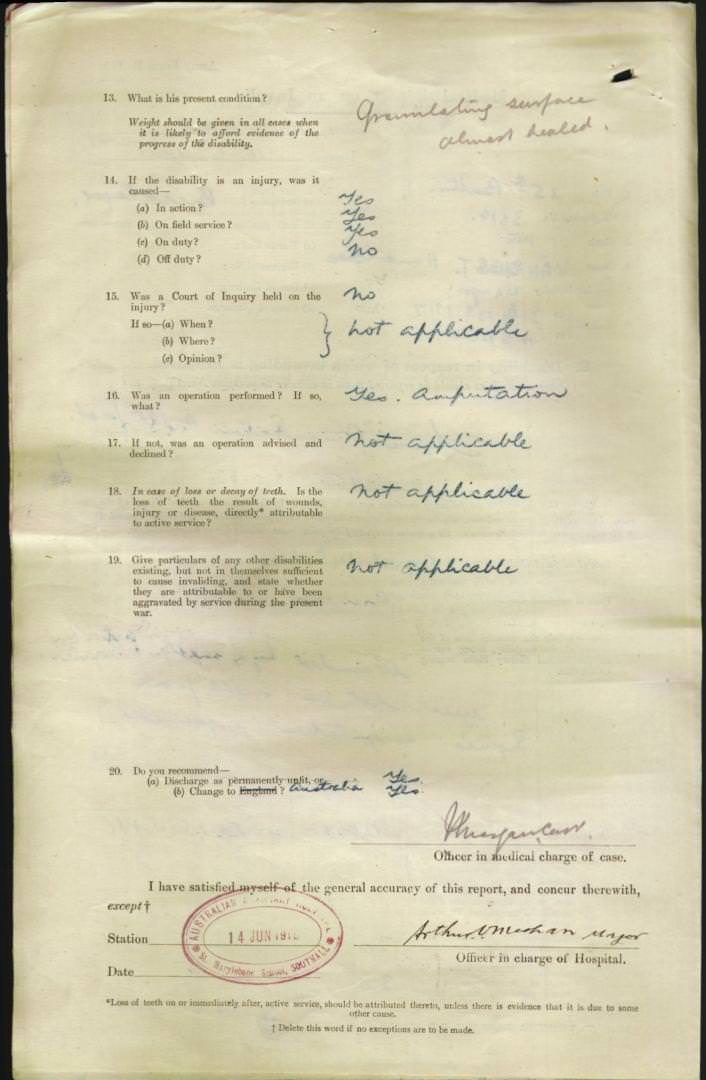 13. What is his present condition?
Weight should be given in all cases when
it is likely to afford evidence of the
progress of the disability.
Granulating surface
almost healed.
14. If the disability is an injury, was it
caused—
(a) In action? Yes
(b) On field service? Yes
(c) On duty? Yes
(d) Off duty? No
15. Was a Court of Inquiry held on the
injury? No
If so—(a) When?
(b) Where? not applicable
(c) Opinion?
16. Was an operation performed? If so,
what? Yes. Amputation
17. If not, was an operation advised and
declined? Not applicable
18. In case of loss or decay of teeth. Is the
loss of teeth the result of wounds,
injury or disease, directly* attributable
to active service? Not applicable
19. Give particulars of any other disabilities
existing, but not in themselves sufficient
to cause invaliding, and state whether
they are attributable to or have been
aggravated by service during the present
war.
not applicable
20. Do you recommend—
(a) Discharge as permanently unfit, or Yes.
(b) Change to England? Australia Yes.
Officer in medical charge of case.
I have satisfied myself of the general accuracy of this report, and concur therewith,
except †
Station
AUSTRALIAN
14 JUN
St. Marylebone School, SOUTHALL
Arthur Meehan Major
Officer in charge of Hospital.
Date
*Loss of teeth on or immediately after, active service, should be attributed thereto, unless there is evidence that it is due to some
other cause.
† Delete this word if no exceptions are to be made.